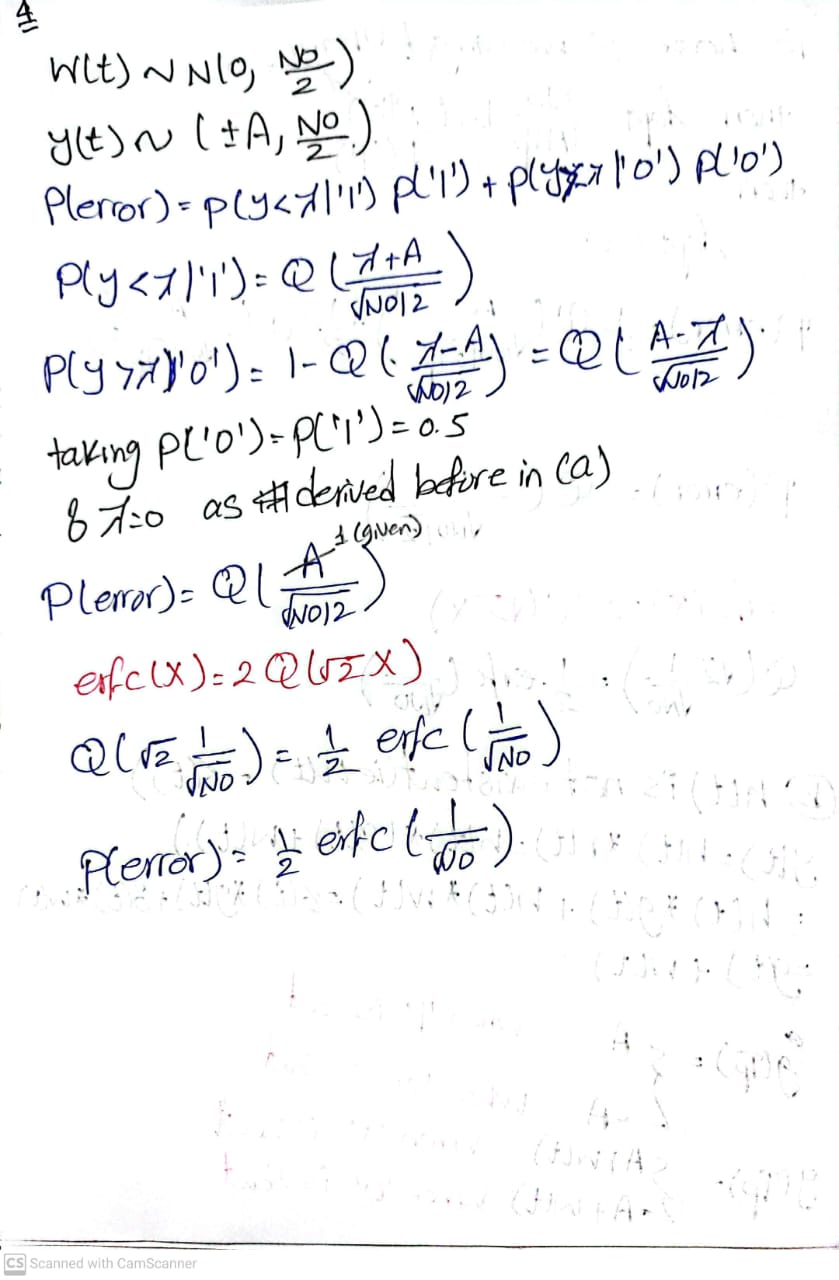 4
W(t) ~ N(0, No/2)
y(t) ~ (±A, No/2)
P(error) = P(y<λ|'1') P('1') + P(y>λ|'0') P('0')
P(y<λ|'1') = Q((λ+A)/√(No/2))
P(y>λ|'0') = 1-Q((λ-A)/√(No/2)) = Q((A-λ)/√(No/2))
taking P('0') = P('1') = 0.5
& λ=0 as derived before in (a)
1 (given)
P(error) = Q(A/√(No/2))
erfc(X) = 2 Q(√2 X)
Q(√2 1/√No) = 1/2 erfc(1/√No)
P(error) = 1/2 erfc(1/√No)
CS Scanned with CamScanner